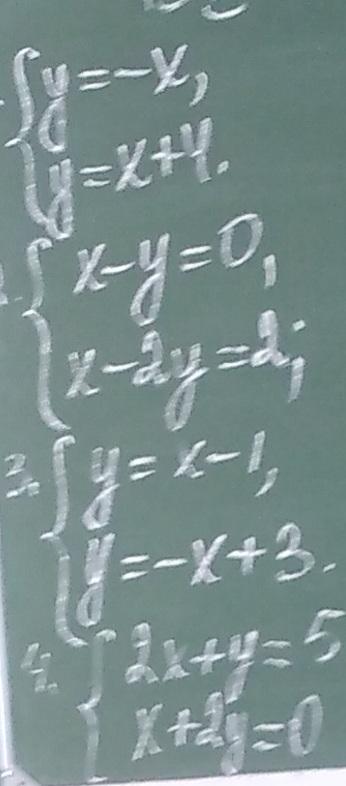 y=-x,
y=x+4.
2. x-y=0,
x-2y=2;
3. y=x-1,
y=-x+3.
4. 2x+y=5
x+2y=0